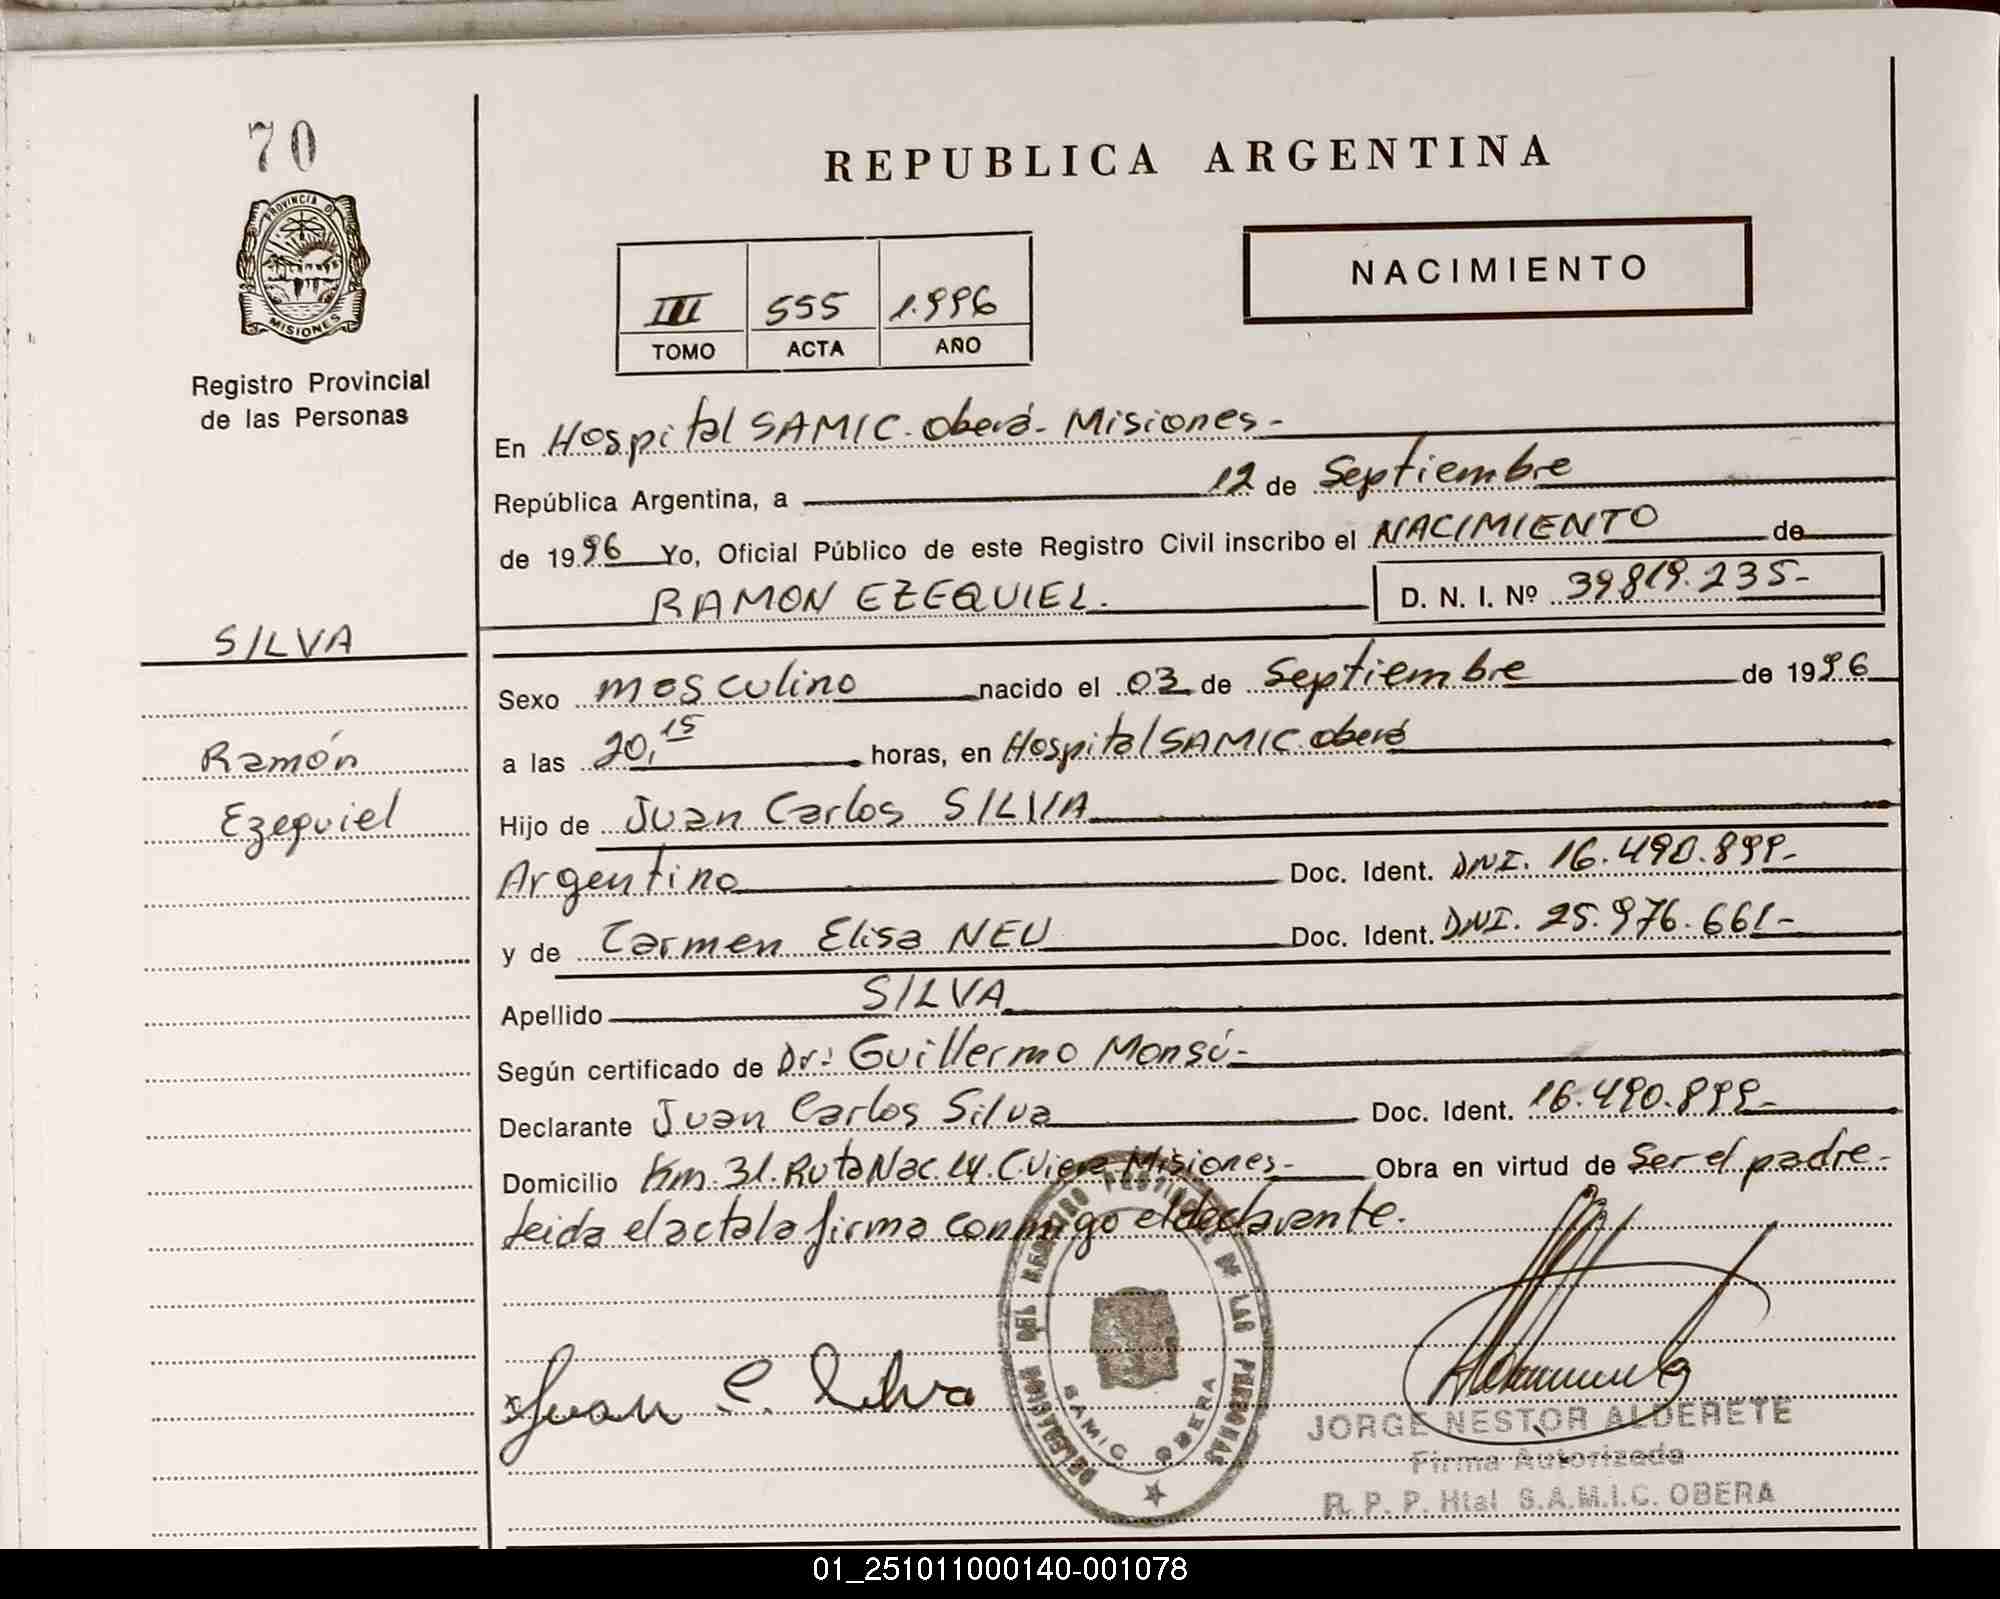 70
PROVINCIA DE
MISIONES
Registro Provincial
de las Personas
REPUBLICA ARGENTINA
NACIMIENTO
III 555 1.996
TOMO ACTA AÑO
En Hospital SAMIC. Oberá- Misiones-
República Argentina, a 12 de Septiembre
de 1996 Yo, Oficial Público de este Registro Civil inscribo el NACIMIENTO de
RAMON EZEQUIEL. D. N. I. Nº 39.819.235-
SILVA
Ramón
Ezequiel
Sexo masculino nacido el 03 de Septiembre de 1996
a las 20,15 horas, en Hospital SAMIC. oberá
Hijo de Juan Carlos SILVA
Argentino Doc. Ident. DNI. 16.490.899-
y de Carmen Elisa NEU Doc. Ident. DNI. 25.976.661-
Apellido SILVA
Según certificado de Dr: Guillermo Monsú-
Declarante Juan Carlos Silva Doc. Ident. 16.490.899-
Domicilio Km. 31. Ruta Nac. 14. C. Viera Misiones- Obra en virtud de Ser el padre-
leida el acta la firma conmigo el declarante.
Juan C. Silva
DELEGACION DEL REGISTRO PROVINCIAL DE LAS PERSONAS
SAMIC OBERA
JORGE NESTOR ALDERETE
Firma Autorizada
R. P. P. Htal S.A.M.I.C. OBERA
01_251011000140-001078